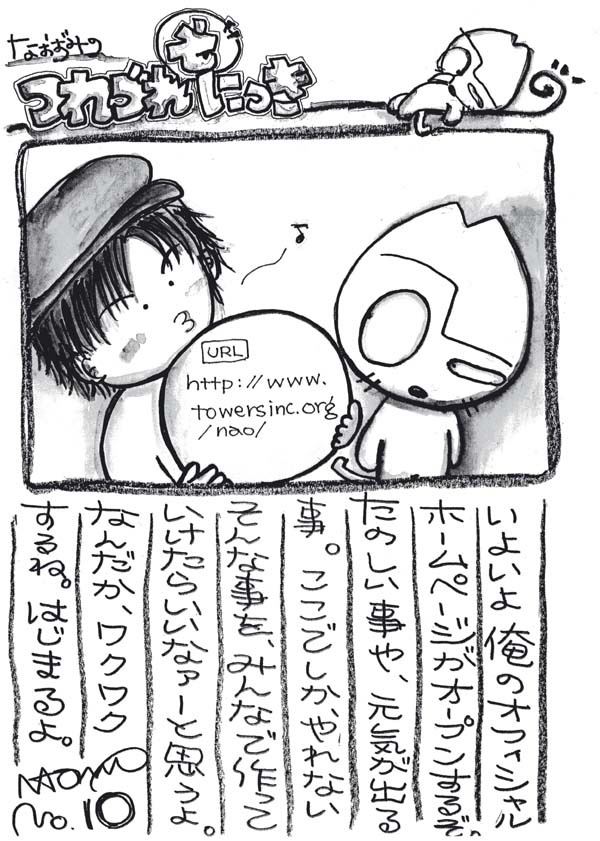 なおずみの
つれづれ
え
にっき
URL
http://www.
towersinc.org
/nao/
いよいよ俺のオフィシャル
ホームページがオープンするぞ。
たのしい事や、元気が出る
事。ここでしか、やれない
そんな事を、みんなで作って
いけたらいいなァーと思うよ。
なんだか、ワクワク
するね。はじまるよ。
No.10